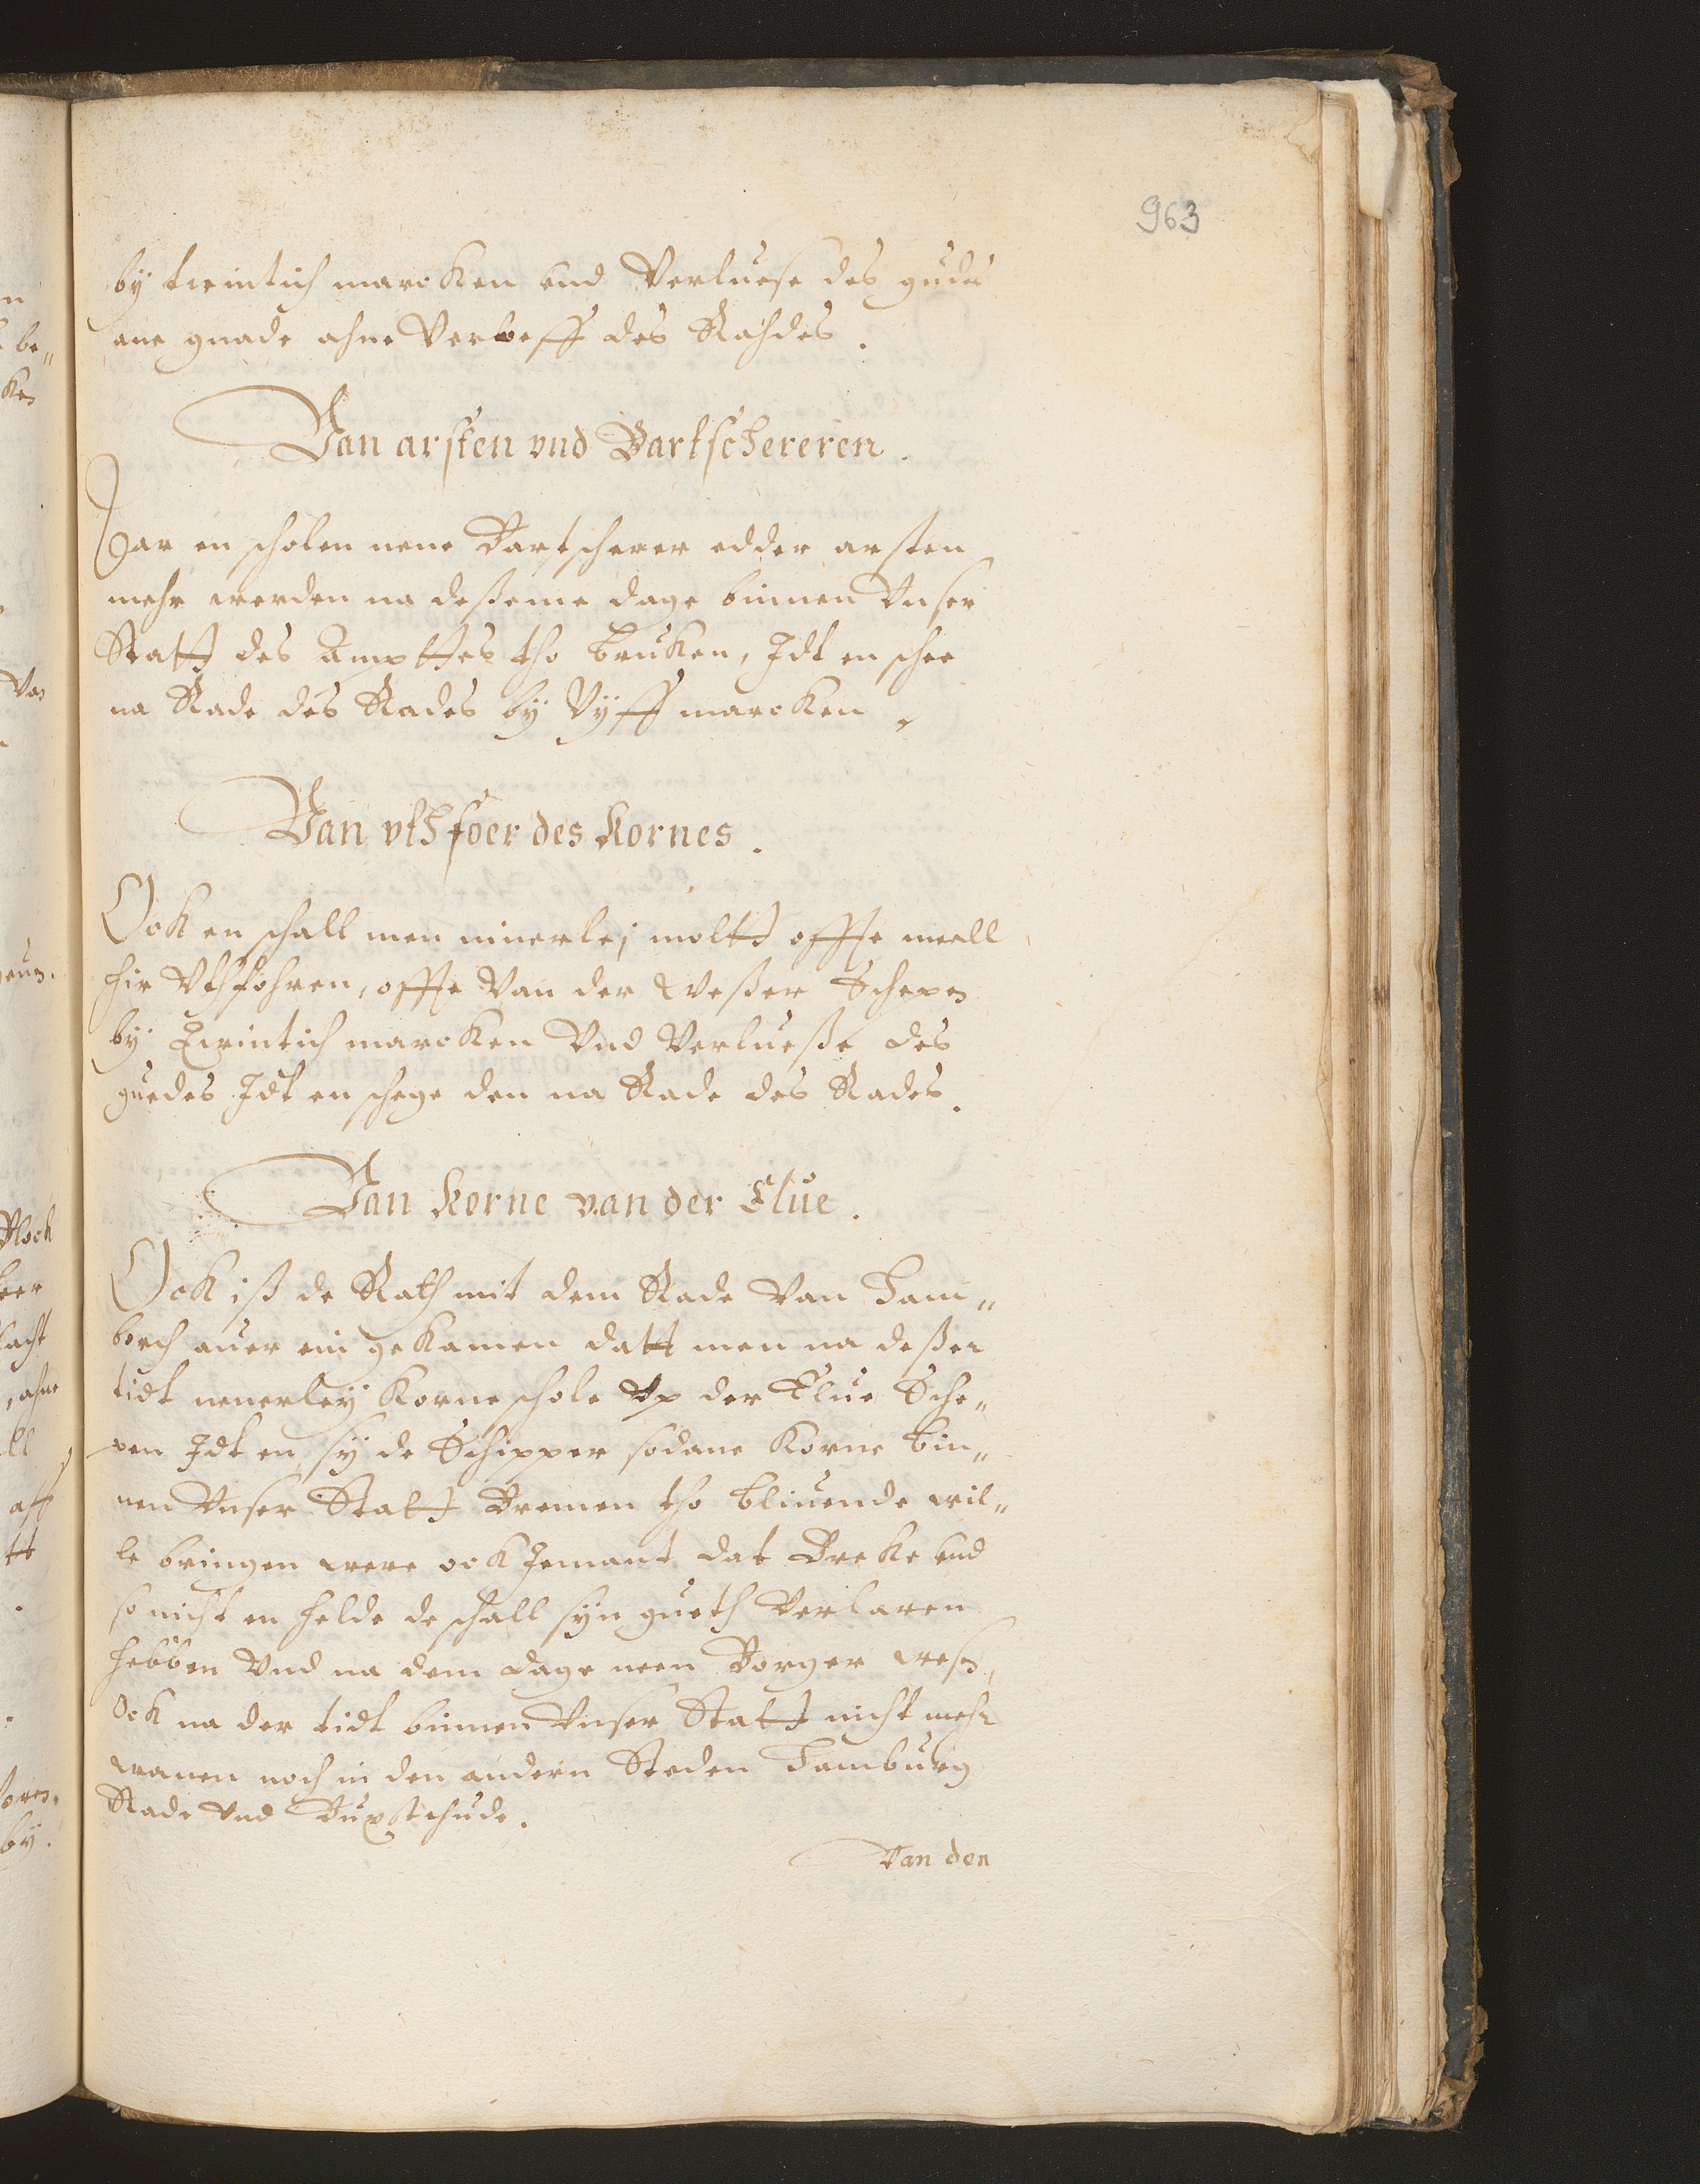 963
by twintich marcken und Verluese des gudes
ane gnade ahne Verloeff des Rahdes.
Van arsten vnd Bartschereren.
Dar en scholen nene Bartscherer edder arsten
mehr werden na deßeme dage binnen Vnser
Statt des Ampttes tho bruken, Idt en schee
na Rade des Rades by Vyff marcken.
Van vthfoer des Kornes.
Ock en schall men ninerlej moltt offte meell
hir Vthföhren, offte Van der Weßer Schepen
by Twintich marcken Vnd Verlueße des
guedes Idt en schege den na Rade des Rades.
Van Korne van der Elue.
Ock iß de Rath mit dem Rade Van Ham„
borch auer ein gekamen datt men na deßer
tidt nenerley Korne schole Vp der Elue Sche„
pen Idt en sy de Schipper sodane Korne bin„
nen Vnser Statt Bremen tho bliuende wil„
le bringen were ock Jemant dat Breke und
so nicht en helde de schall syn gueth Verlaren
hebben Vnd na dem dage neen Borger wesen,
Ock na der tidt binnen Vnser Statt nicht mehr
wanen noch in den andern Steden Hamburg
Stade Vnd Buxstehude.
Van den